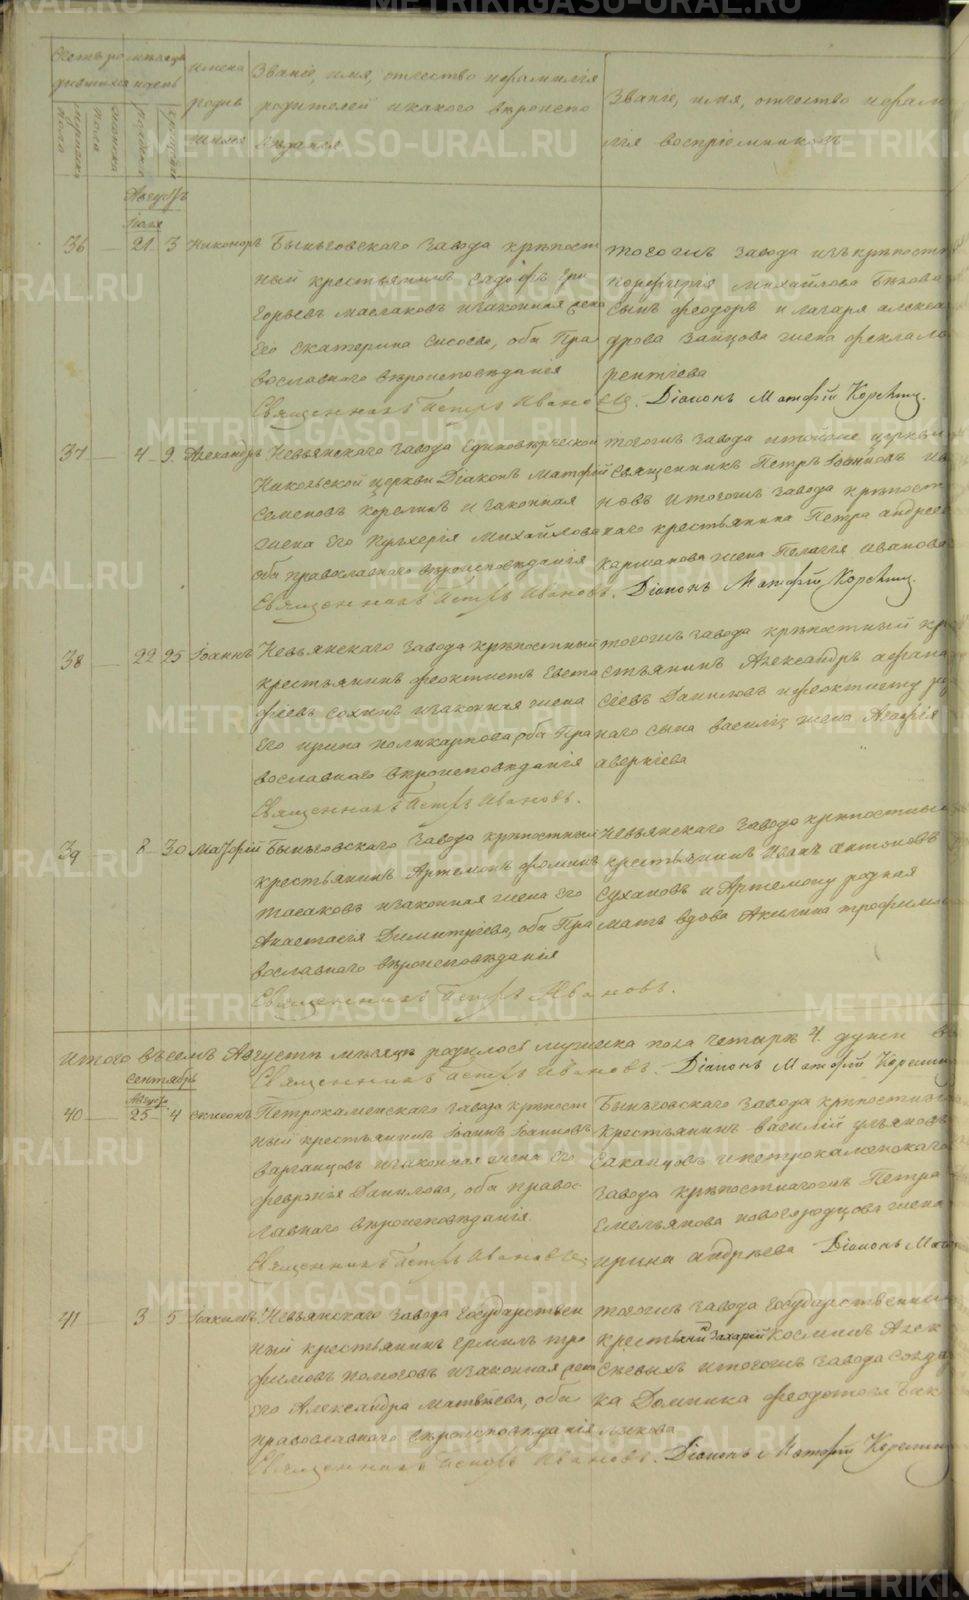 Счетъ ро
дившихся
мѣсяцъ
и день
имена
родив
шихся
Званіе, имя, отчество и фамилія
родителей и какого вѣроиспо
вѣданія
Званіе, имя, отчество и фами
лія воспріемниковъ
Августъ
Іюля
36 — 21 3 Никоноръ
Быньговскаго завода крѣпост
ный крестьянинъ Садофъ Гри
горьевъ Маслаковъ и законная жена
его Екатерина Сисоева, оба Пра
вославнаго вѣроисповѣданія
Священникъ Петръ Ивановъ. Діаконъ Матфій Корелин
тогожъ завода изъ крѣпостн
Порфирія Михайлова
сынъ Феодоръ и Лазаря Алекса
дрова Зайцова жена Фекла Ла
рентіева
37 — 4 9 Александръ
Невьянскаго завода Единовѣрческой
Никольской церкви Діаконъ Матфій
Семеновъ Корелинъ и законная
жена его Пульхерія Михайлова
оба православнаго вѣроисповѣданія
Священникъ Петръ Ивановъ. Діаконъ Матфій Корелин
тогожъ завода и тойже церкви
Священникъ Петръ Іоанновъ Ива
новъ и тогожъ завода крѣпост
наго крестьянина Петра Андрее
Карманова жена Пелагея Иванова
38 — 22 25 Іоаннъ
Невьянскаго завода крѣпостный
крестьянинъ Феоктистъ Евста
фіевъ Сохинъ и законная жена
его Ирина Поликарпова, оба Пра
вославнаго вѣроисповѣданія
Священникъ Петръ Ивановъ.
тогожъ завода крѣпостный кре
стьянинъ Александръ Афана
сіевъ Даниловъ и Феоктисту род
наго сына Василія жена Агафія
Аверкіева
39 — 8 30 Матфій
Быньговскаго завода крѣпостный
крестьянинъ Артемонъ Фоминъ
Тасаковъ и законная жена его
Анастасія Димитріева, оба Пра
вославнаго вѣроисповѣданія
Священникъ Петръ Ивановъ.
Невьянскаго завода крѣпостный
крестьянинъ Иванъ Антоновъ
Сухановъ и Артемону родная
мать вдова Акилина Трофимо
Итого въ семъ Августѣ мѣсяцѣ родилось мужеска пола четыре 4. души
Священникъ Петръ Ивановъ. Діаконъ Матфій Корелин
Сентябрь
Августа
40 — 25 4 Симеонъ
Петрокаменскаго завода крѣпост
ный крестьянинъ Іоаннъ Іоанновъ
Варганцовъ и законная жена его
Февронія Данилова, оба право
славнаго вѣроисповѣданія.
Священникъ Петръ Ивановъ
Быньговскаго завода крѣпостный
крестьянинъ Василій Ульяновъ
и Петрокаменскаго
завода крѣпостнагожъ Петра
Емельянова жена
Ирина Андрѣева Діаконъ Мат
41 3 5 Іоакимъ
Невьянскаго завода Государствен
ный крестьянинъ Ермилъ Тро
фимовъ Помоговъ и законная жена
его Александра Матвѣева, оба
православнаго вѣроисповѣданія
Священникъ Петръ Ивановъ. Діаконъ Матфій Корелин
тогожъ завода Государственный
крестьянинъ Захарій Косминъ Алек
сѣевыхъ и тогожъ завода солда
ка Домника Феодотова
METRIKI.GASO-URAL.RU